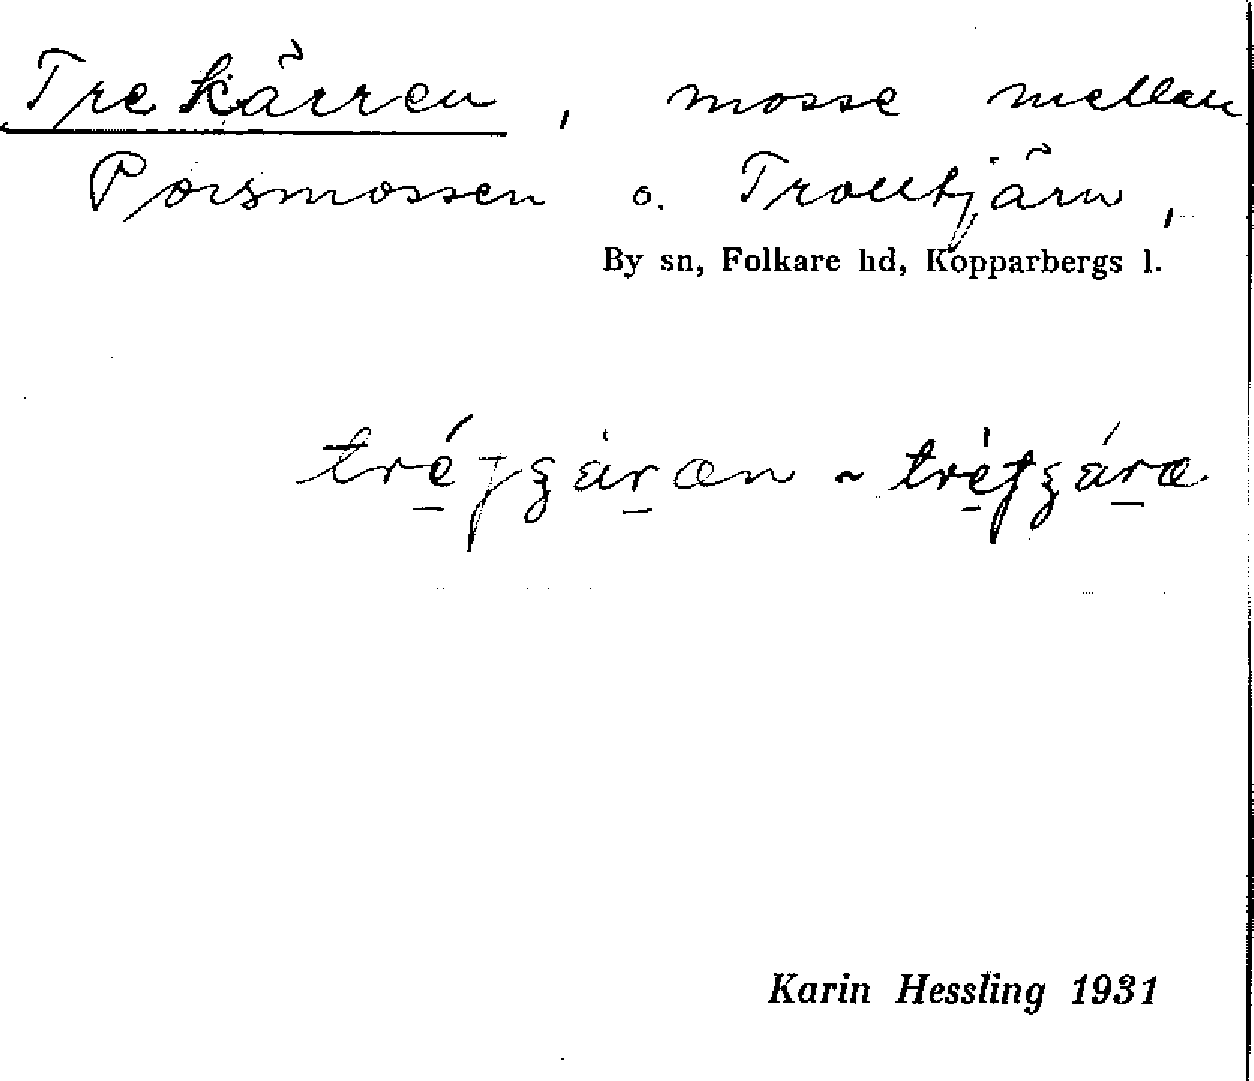 Tre kärren, mosse mellan
Porsmossen o. Trolltjärn,
By sn, Folkare hd, Kopparbergs l.
Karin Hessling 1931